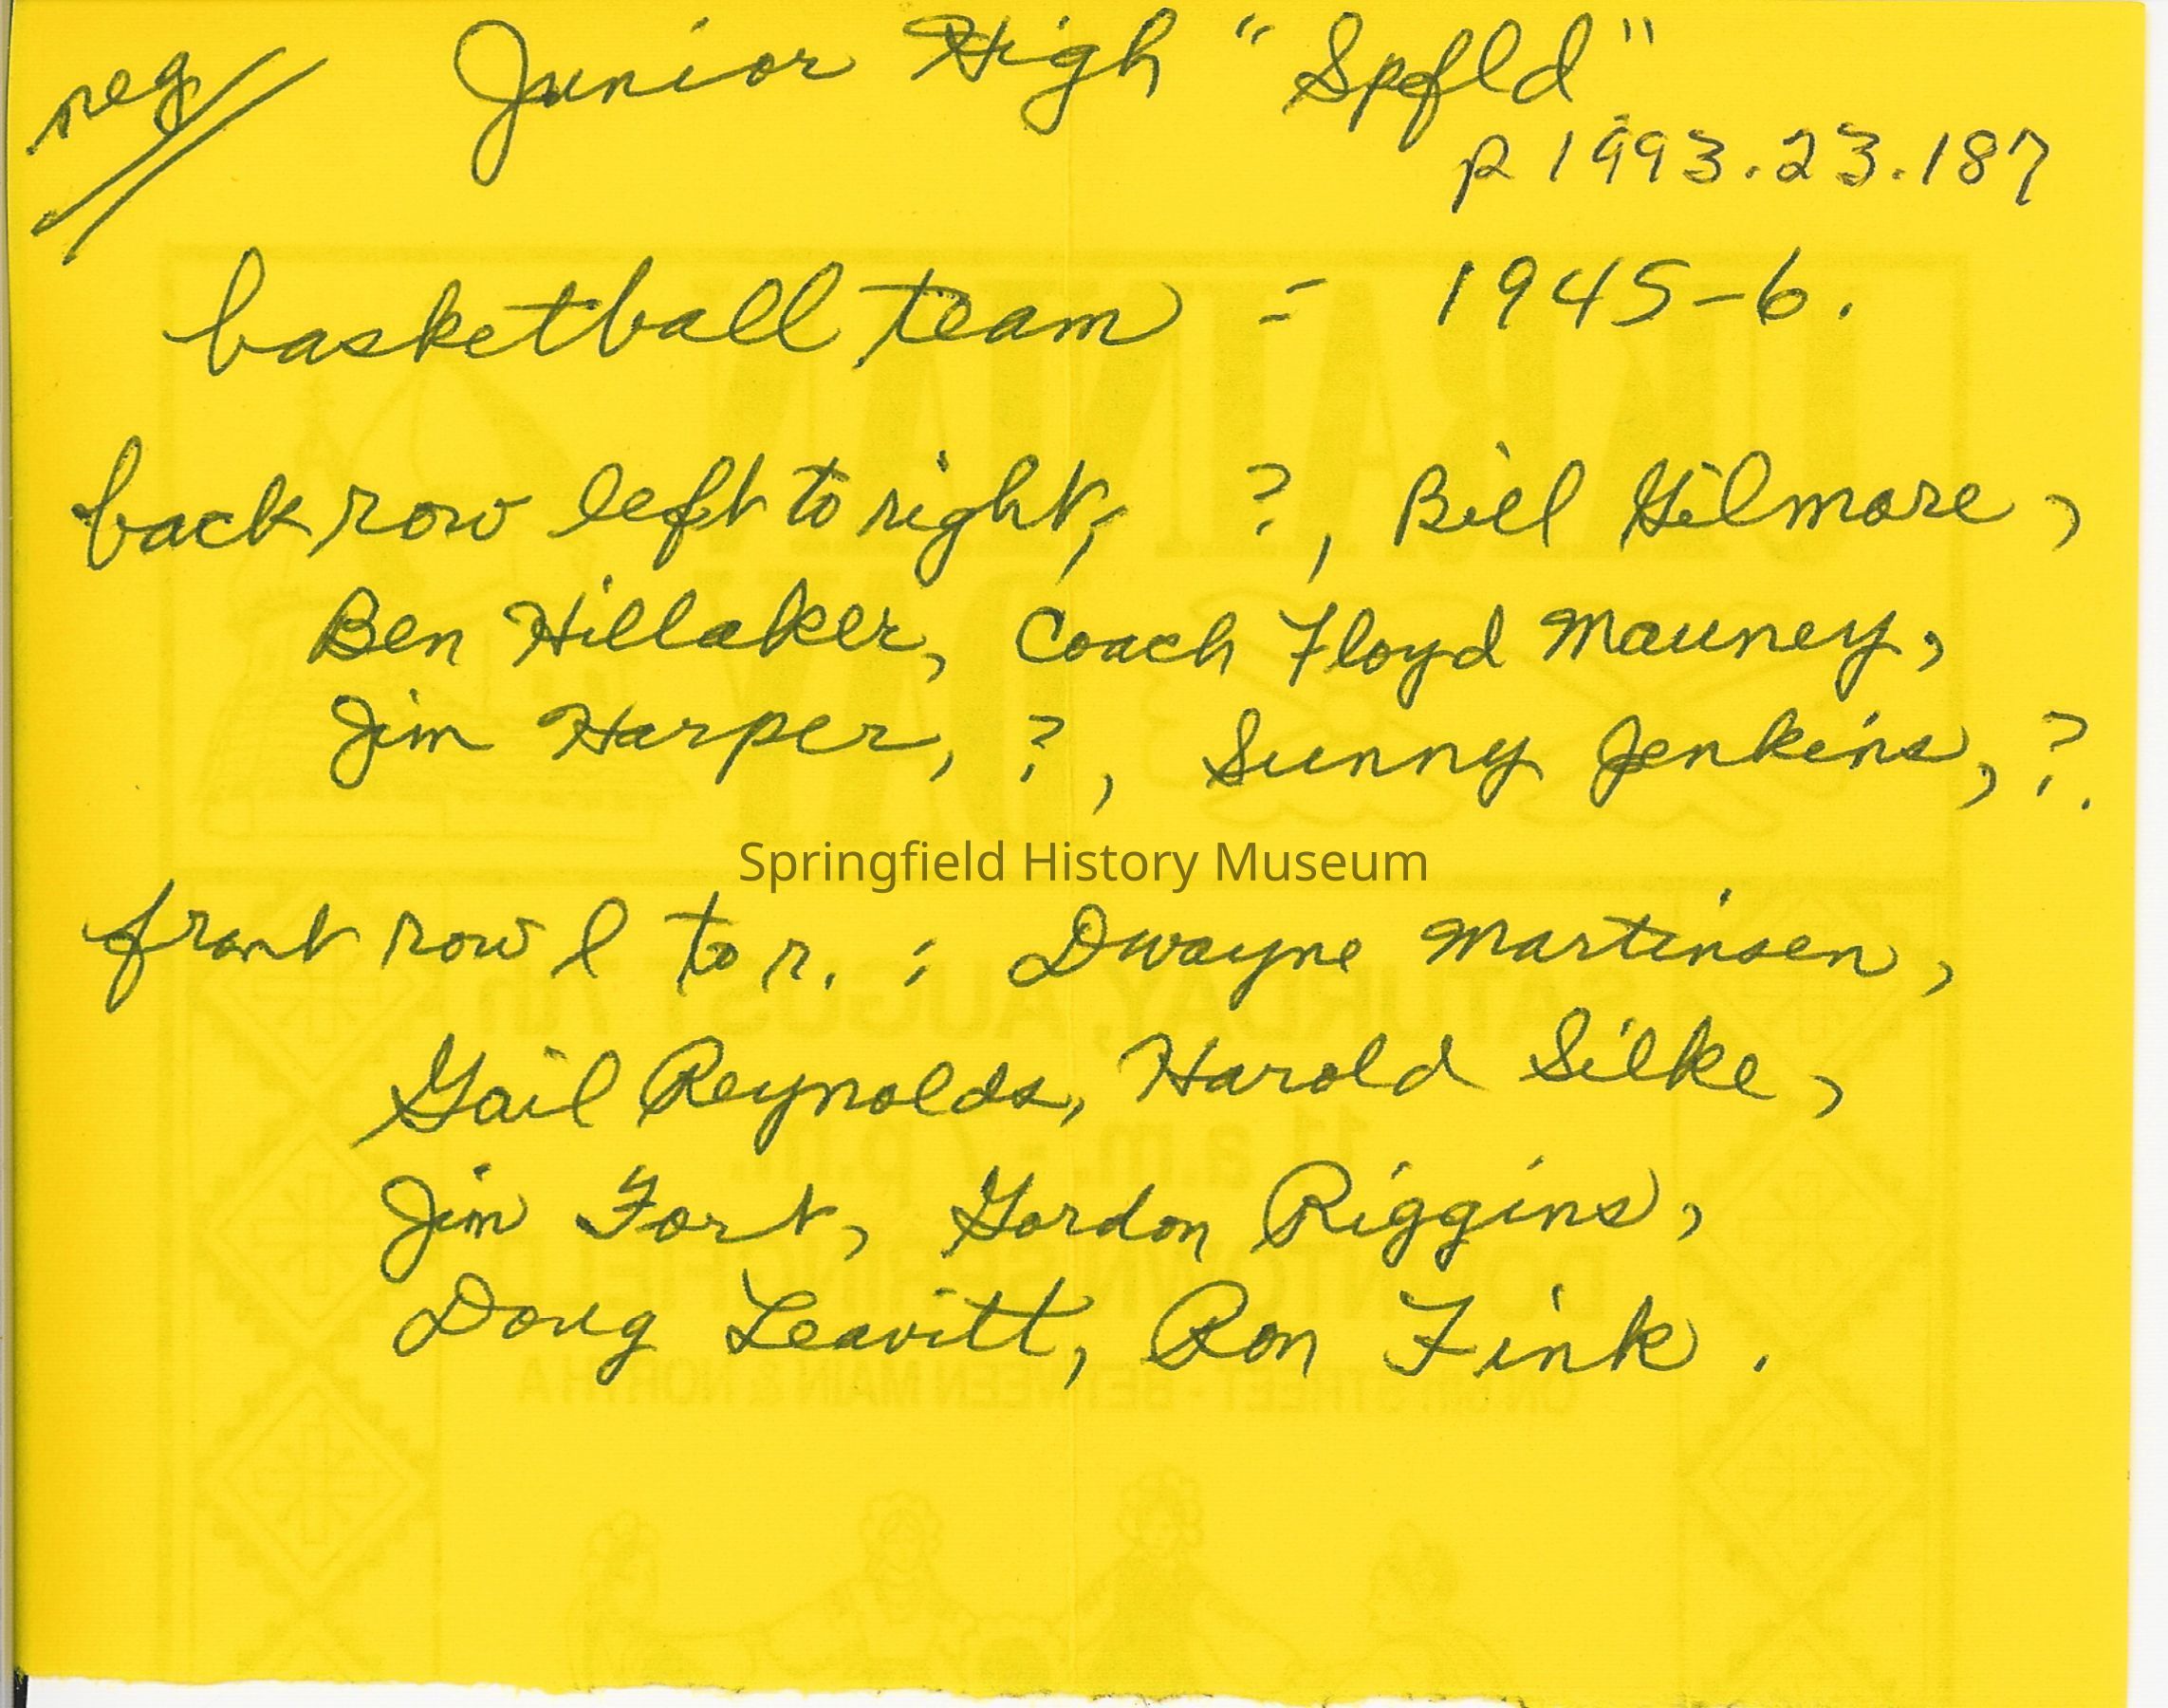 neg Junior High "Spfld"
p1993.23.187
basketball team = 1945-6.
back row left to right, ?, Bill Gilmore,
Ben Hillaker, Coach Floyd Mauney,
Jim Harper, ?, Sunny Jenkins, ?.
Springfield History Museum
front row l to r. : Dwayne Martinsen,
Gail Reynolds, Harold Silke,
Jim Fort, Gordon Riggins,
Doug Leavitt, Ron Fink.
UKRAINIAN
DAY
SATURDAY, AUGUST 7th
11 a.m. - 7 p.m.
DOWNTOWN SPRINGFIELD
ON 5th STREET - BETWEEN MAIN & NORTH A